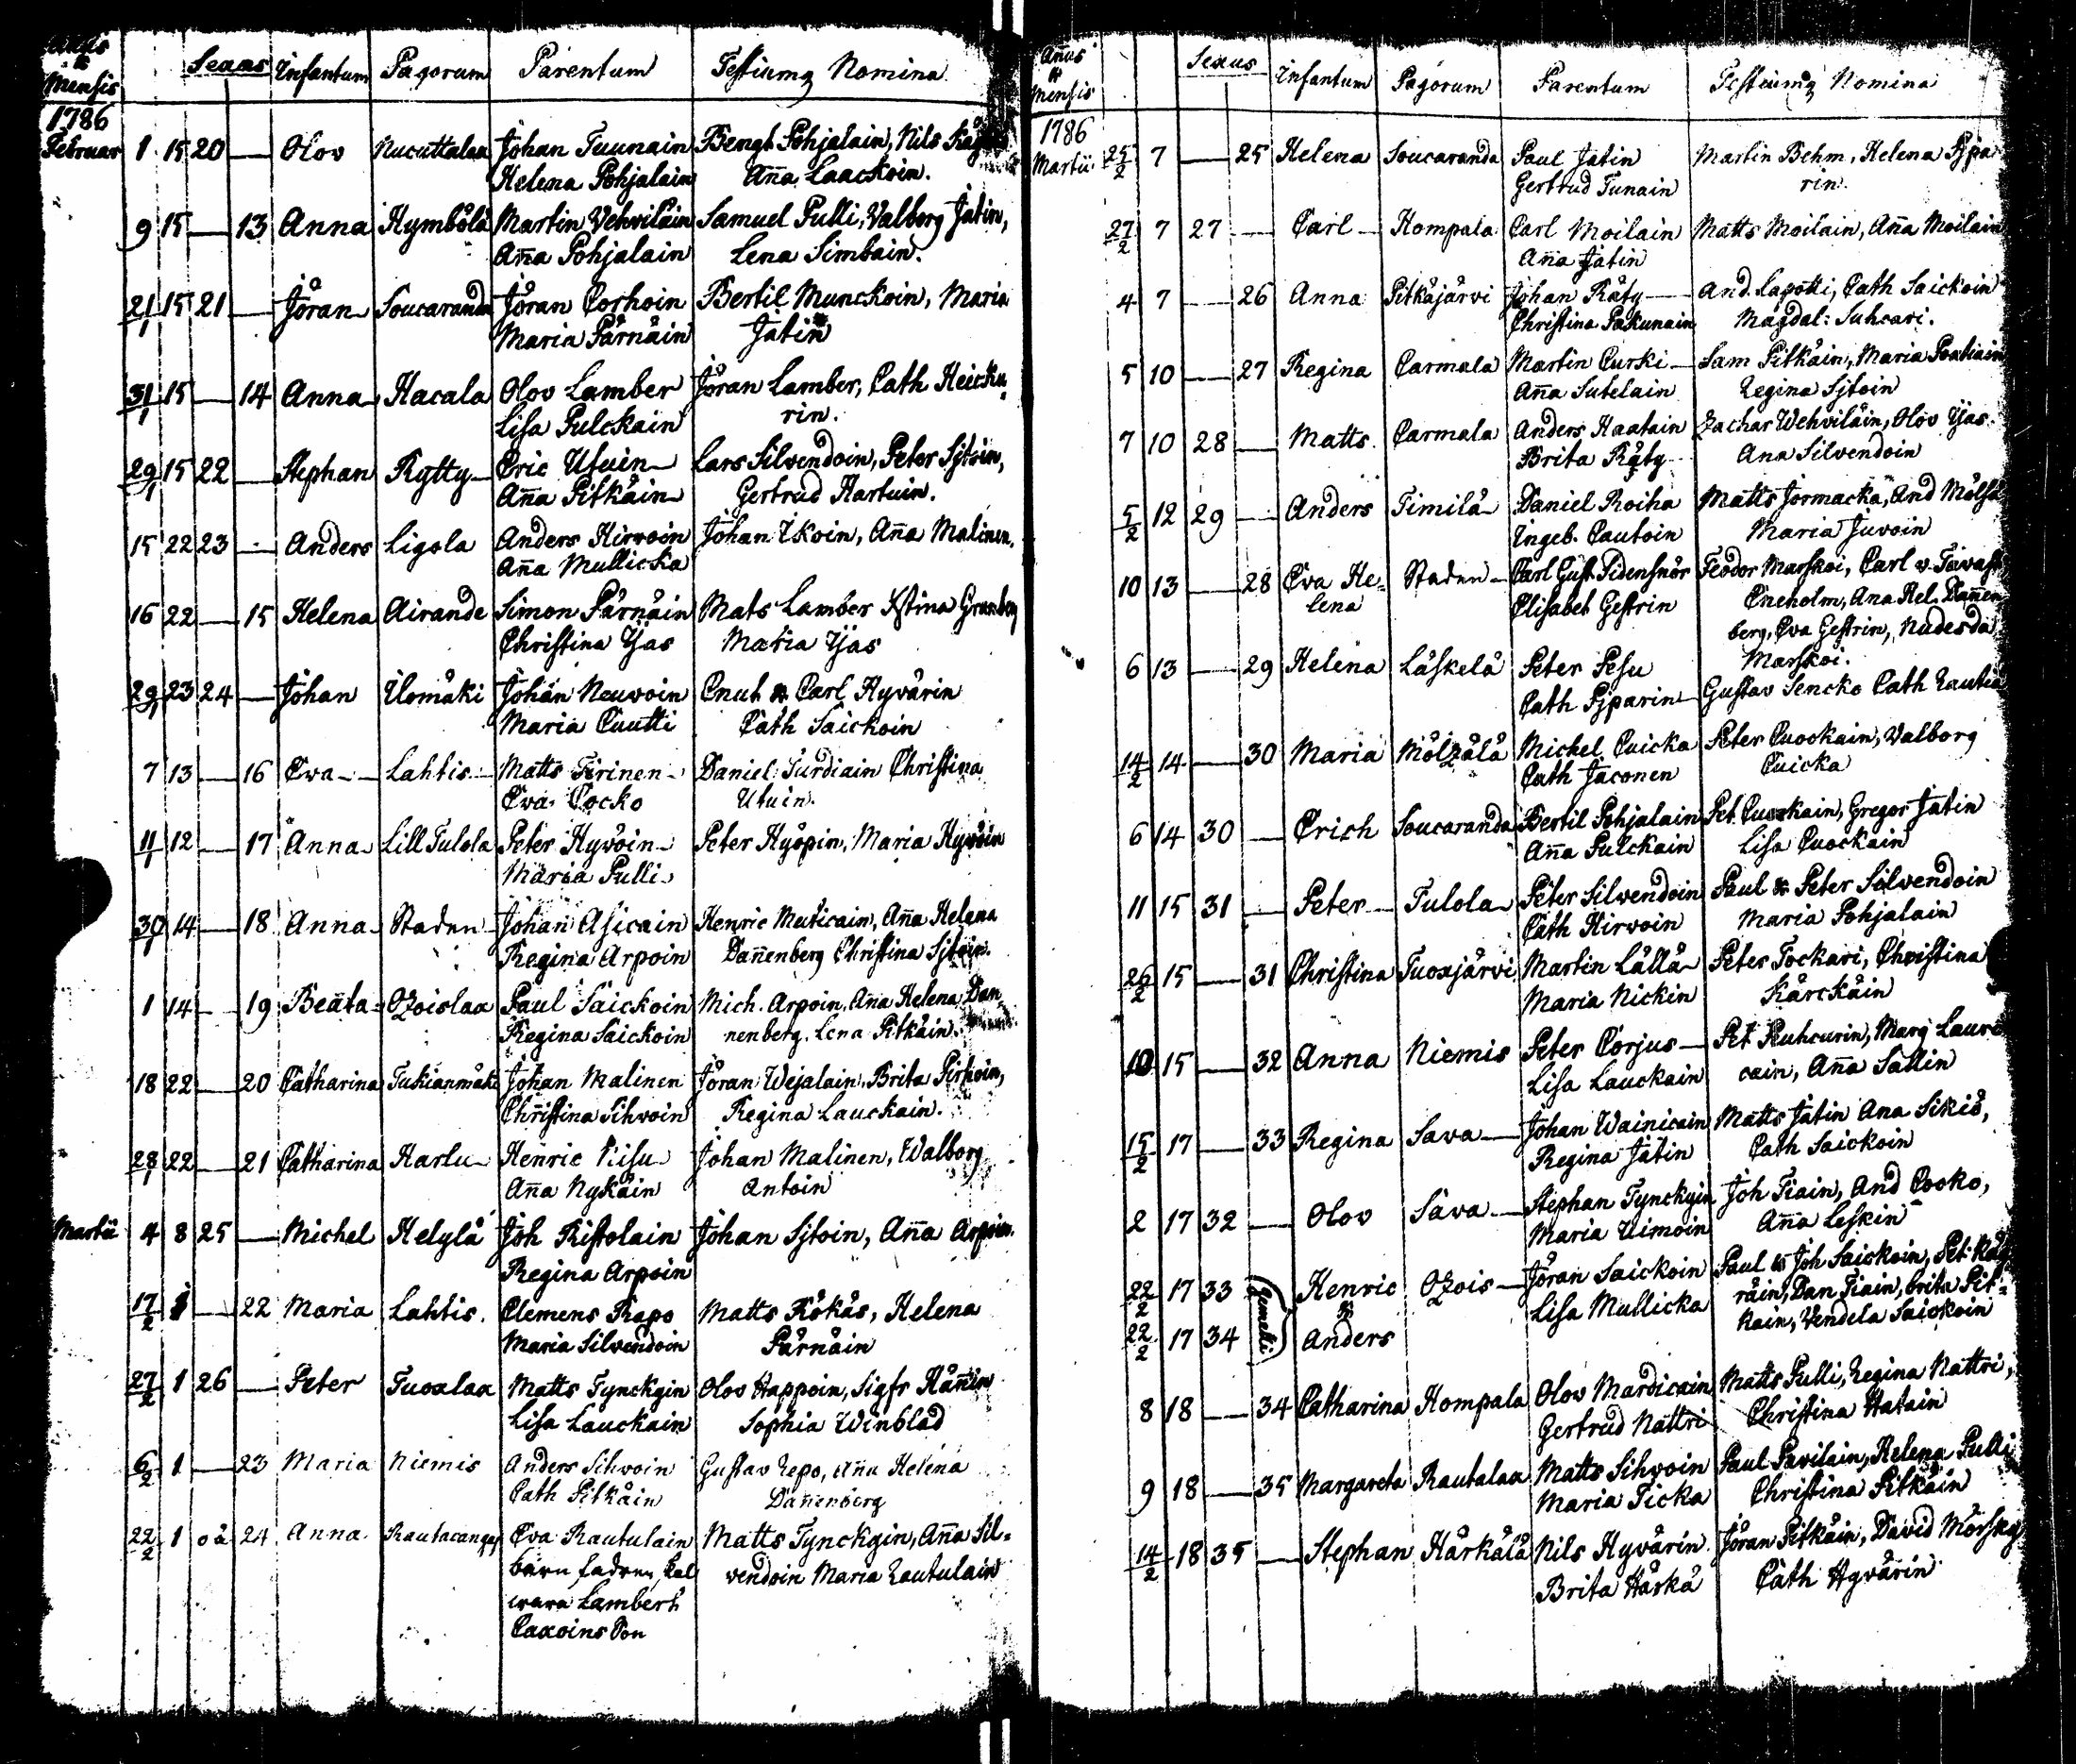 Annus & Mensis Sexus Infantum Pagorum Parentum Testiumq Nomina
1786
Februar 1 15 20 — Olov Nucuttalax Johan Tuunain Bengt Pohjalain, Nils
Helena Pohjalain Aña Laackoin.
9 15 — 13 Anna Hymbölä Martin Vehviläin Samuel Pulli, Valborg Jatin,
Aña Pohjalain Lena Simbain.
21/1 15 21 — Jöran Soucaranda Jöran Corhoin Bertil Munckoin, Maria
Maria Pärnäin Jatin
31/1 15 — 14 Anna Hacala Olov Lamber Jöran Lamber, Cath Heicku-
Lisa Pulckain rin.
29/1 15 22 — Stephan Rytty Eric Utuin Lars Silvendoin, Peter Sjtoin,
Aña Pitkäin Gertrud Hartuin.
15 22 23 — Anders Ligola Anders Hirvoin Johan Ikoin, Aña Malinen.
Aña Mullicka
16 22 — 15 Helena Airande Simon Pärnäin Mats Lamber Kstina Granberg
Christina Yas Maria Yas
29/1 23 24 — Johan Ilomäki Johan Neuvoin Cnut & Carl Hyvärin
Maria Cuutti Cath Saickoin
7 13 — 16 Eva Lahtis Matts Tirinen Daniel Surdiain Christina
Eva Cocko Utuin.
11/1 12 — 17 Anna Lill Tulola Peter Hyvöin Peter Hyöpin, Maria Hyvöin
Maria Pulli
30/1 14 — 18 Anna Staden Johan Asicain Henric Muticain, Aña Helena
Regina Arpoin Dañenberg Christina Sjtoin.
1 14 — 19 Beata Ozoislax Paul Saickoin Mich. Arpoin, Aña Helena Dan-
Regina Saickoin nenberg. Lena Pitkäin.
18 22 — 20 Catharina Tukianmäki Johan Malinen Jöran Wejalain, Brita Pirhoin,
Christina Sihvoin Regina Lauckain.
28/1 22 — 21 Catharina Harlu Henric Kisu Johan Malinen, Walborg
Aña Nykäin Antoin
Martii 4 8 25 — Michel Helylä Joh Ristolain Johan Sjtoin, Aña Arpoin.
Regina Arpoin
17/2 1 — 22 Maria Lahtis. Clemens Rapo Matts Kökäs, Helena
Maria Silvendoin Pärnäin
27/2 1 26 — Peter Tuoxlax Matts Tynckyin Olov Happoin, Sigfr Häñin
Lisa Lauckain Sophia Winblad
6/2 1 — 23 Maria Niemis Anders Sihvoin Gustav Repo, Aña Helena
Cath Pitkäin Dañenberg
22/2 1 oä 24 Anna Rautacangas Eva Rautulain Matts Tynckyin, Aña Sil-
barn fadren, Kal vendoin Maria Rautulain
wara Lambert
Caxoins Son
Añus & Mensis Sexus Infantum Pagorum Parentum Testiumq Nomina
1786
Martii 25/2 7 — 25 Helena Soucaranda Paul Jatin Martin Behm, Helena Pjpa
Gertrud Tunain rin.
27/2 7 27 — Carl Hompala Carl Moilain Matts Moilain, Aña Moilain
Aña Jatin
4 7 — 26 Anna Pitkäjärvi Johan Räty And. Lapotti, Cath Saickoin
Christina Pakunain Magdal: Suhcari.
5 10 — 27 Regina Carmala Martin Curki Sam Pitkäin, Maria Poutiain
Aña Sutelain Regina Sjtoin
7 10 28 — Matts Carmala Anders Haatain Zachar Wehviläin, Olov Yas.
Brita Räty Ana Silvendoin
5/2 12 29 — Anders Timilä Daniel Roiha Matts Jormacka, And Mölsä
Ingeb. Cautoin Maria Juvoin
10 13 — 28 Eva He- Staden Carl Gust Tidensnör Feodor Marskoi, Carl v. Tavast
lena Elisabet Gestrin Eneholm, Ana Hel. Dañen
berg, Eva Gestrin, Nadesda
Marskoi.
6 13 — 29 Helena Läskelä Peter Pesu Gustav Sencko Cath Rautia
Cath Pjparin
14/2 14 — 30 Maria Mölzälä Michel Cuicka Peter Cuockain, Valborg
Cath Jaconen Cuicka
6 14 30 — Erich Soucaranda Bertil Pohjalain Pet Cuockain, Gregor Jatin
Aña Pulckain Lisa Cuockain
11 15 31 — Peter Tulola Peter Silvendoin Paul & Peter Silvendoin
Cath Hirvoin Maria Pohjalain
26/2 15 — 31 Christina Tuoxjärvi Martin Lällä Peter Tockari, Christina
Maria Nickin Kärckäin
10 15 — 32 Anna Niemis Peter Corjus Pet Puhcurin, Marg Lauri
Lisa Lauckain cain, Aña Sallin
15/2 17 — 33 Regina Sava Johan Wainicain Matts Jatin Ana Sikiö,
Regina Jatin Cath Saickoin
2 17 32 — Olov Sava Stephan Tynckyin Joh Tiain, And Cocko,
Maria Uimoin Aña Leskin
22/2 17 33 Gemelli Henric Ozois Jöran Saickoin Paul & Joh Saickoin, Pet Käg
& Lisa Mullicka räin, Dan Tiain, Brita Pit-
22/2 17 34 Anders kain, Vendela Saickoin
8 18 — 34 Catharina Hompala Olov Mardicain Matts Pulli, Regina Nattri,
Gertrud Nattri Christina Hatain
9 18 — 35 Margareta Rautalax Matts Sihvoin Paul Pavilain, Helena Pulli
Maria Ticka Christina Pitkäin
14/2 18 35 — Stephan Härkälä Nils Hyvärin Jöran Pitkäin, David Mörsky
Brita Härkä Cath Hyvärin